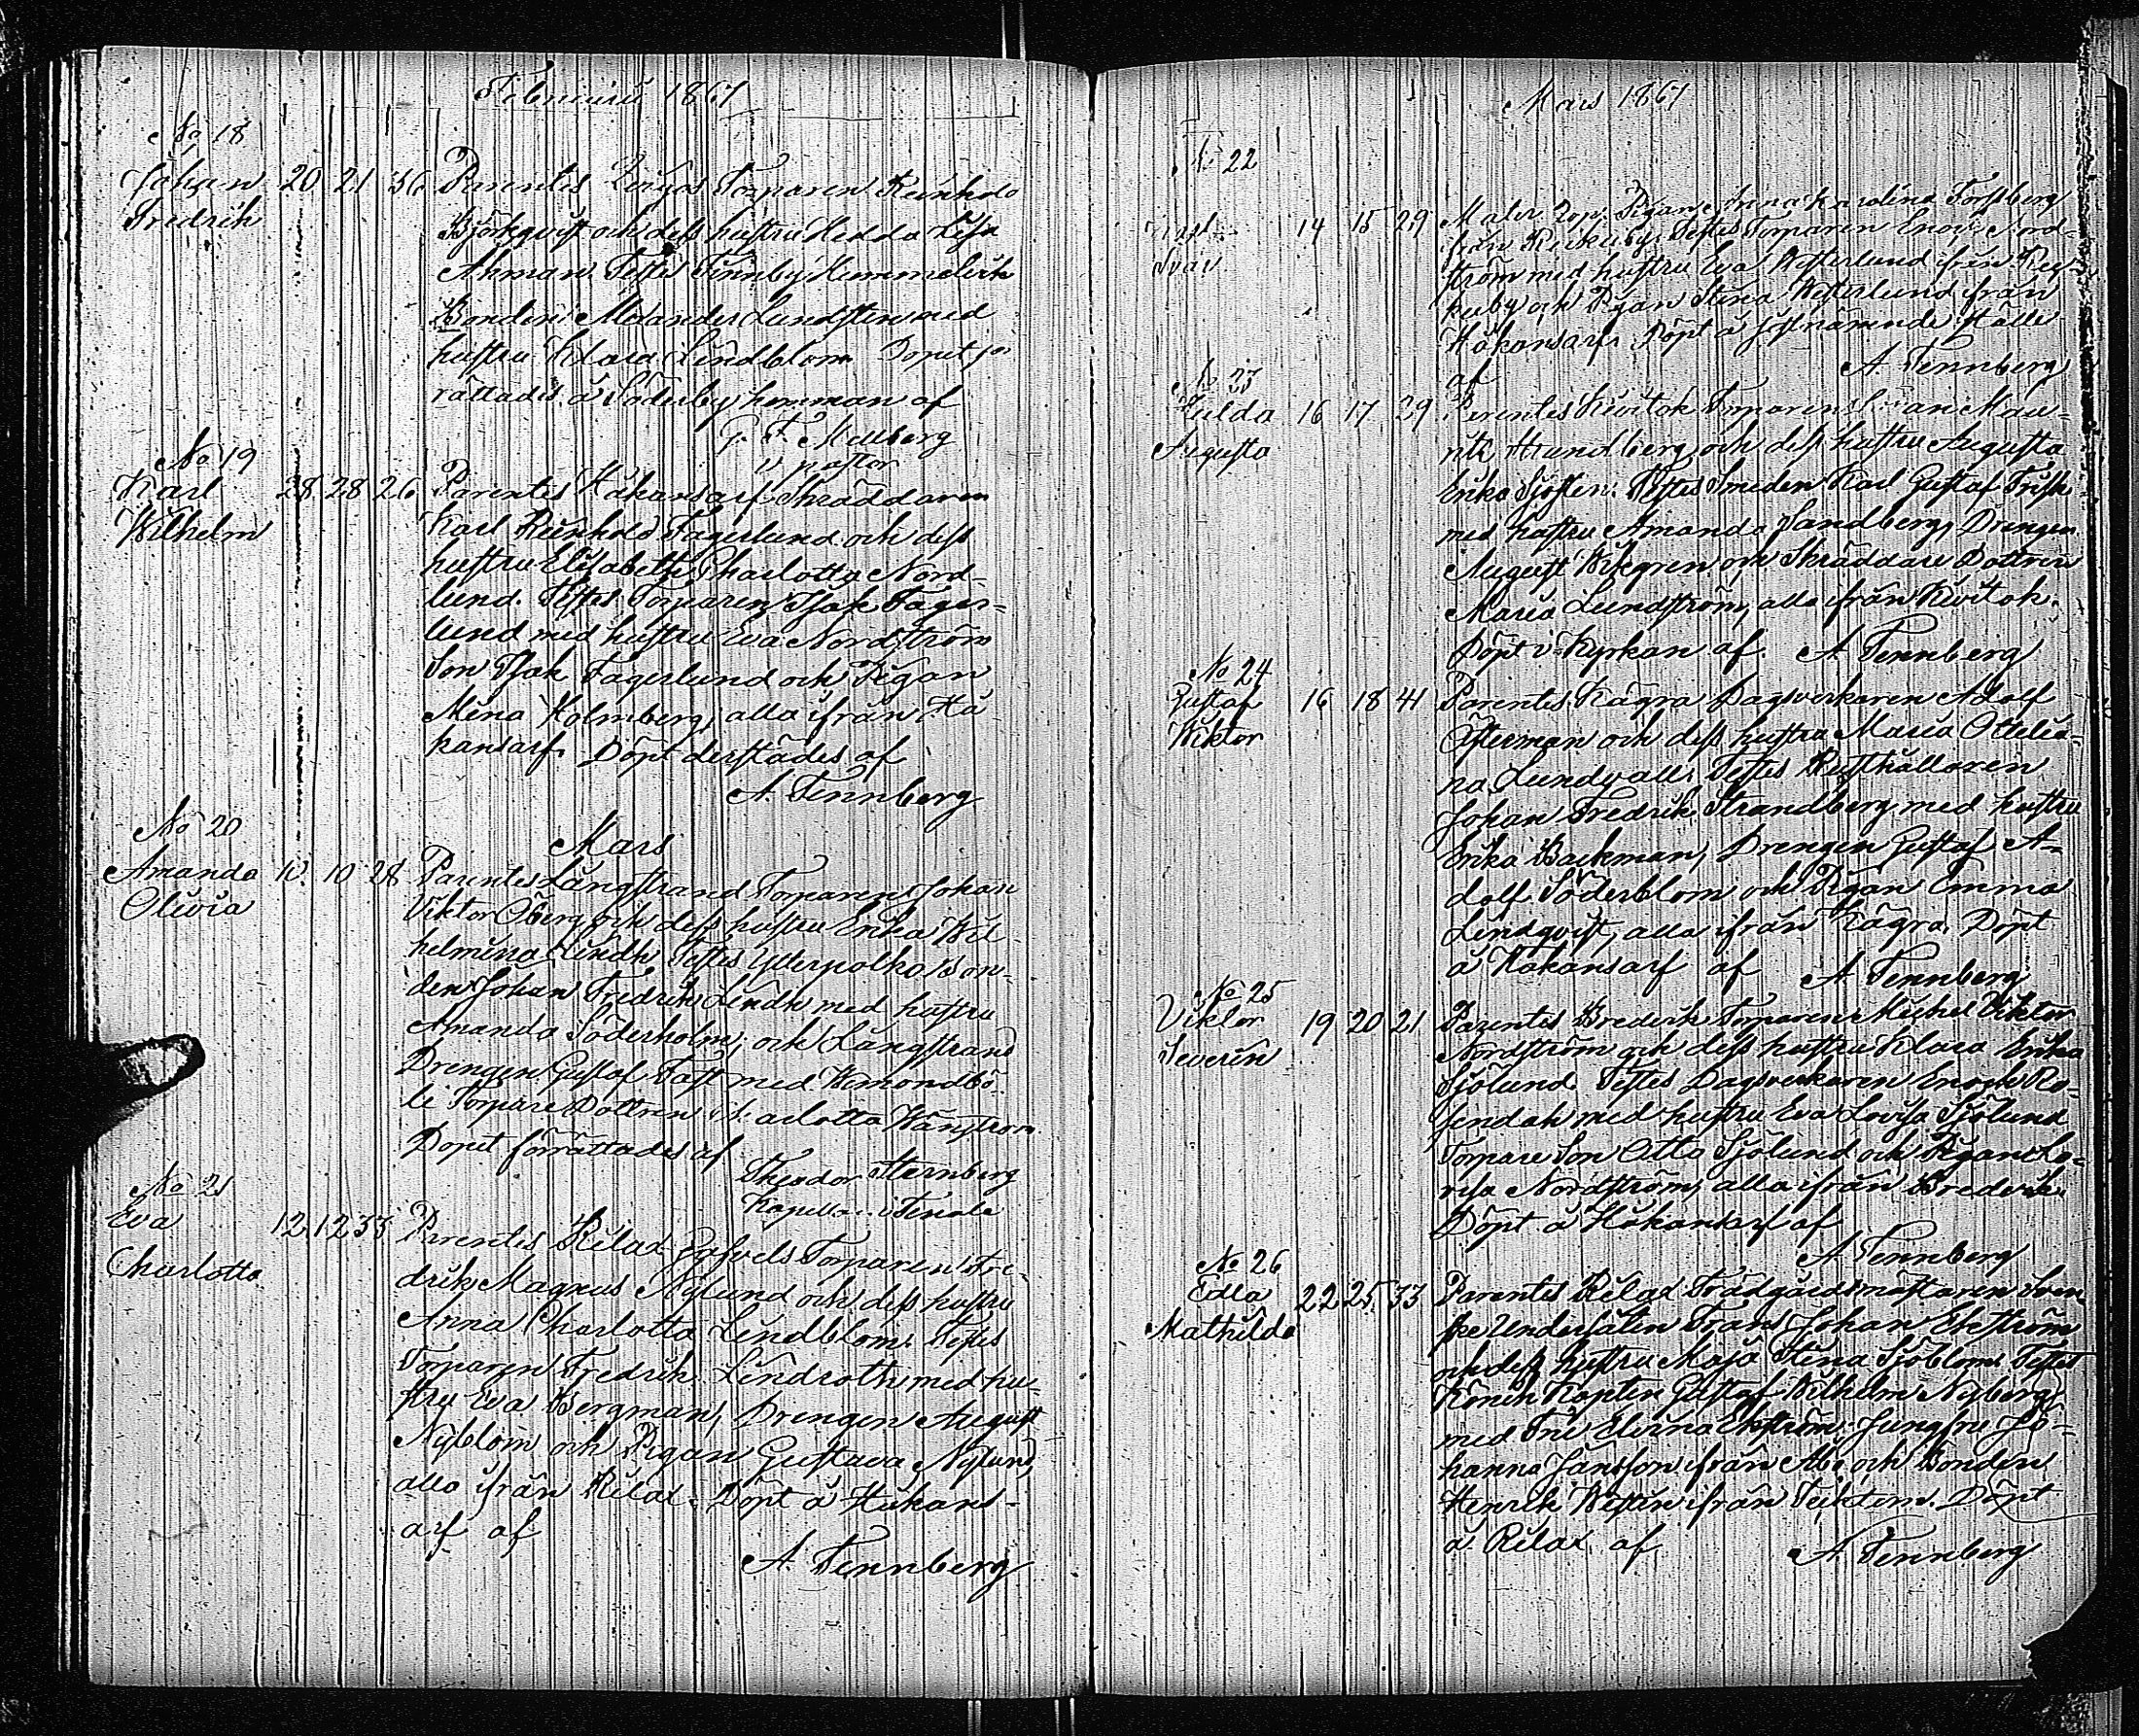 Februari 1867
No 18
Johan 20 21 36 Parentes Torparen Reinhold
Fredrik Björkqvist och dess hustru Hedda Lisa
Åhman. Testes Finnby Hemmelück
Bonden Alexander Lundsten med
hustru Klara Lindblom Dopet för
rättades å Söderby hemman af
G. F. Mellberg
v pastor
No 19
Karl 28 28 26 Parentes Håkansarf Skräddaren
Wilhelm Karl Reinhold Fagerlund och dess
hustru Elisabeth Charlotta Nord-
lund. Testes Torparen Isak Fager-
lund med hustru Eva Nordström
Son Isak Fagerlund och Pigan
Mina Holmberg, alla ifrån Hå
kansarf. Döpt derstädes af
A. Tennberg
No 20
Mars
Amanda 10 10 28 Parentes Långstrand Torparen Johan
Olivia Viktor Öberg och dess hustru Erika Wil-
helmina Lindh Testes Ytterpolka Bon-
den Johan Fredrik Lindh med hustru
Amanda Söderholm, och Långstrand
Drengen Gustaf Fast med Wemondbö-
le Torpare Dottren Charlotta Wänström
Dopet förrättades af
Theodor Sternberg
Kapellan i Tenala
No 21
Eva 12 12 33 Parentes Rilax Torparen Fre-
Charlotta drik Magnus Nylund och dess hustru
Anna Charlotta Lindblom. Testes
Torparen Fredrik Lindroth med hu-
stru Eva Bergman, Drengen August
Nyblom och Pigan Gustava Nylund,
alla ifrån Rilax. Döpt å Håkans-
arf af
A. Tennberg
Mars 1867
No 22
14 15 29 Mater Pigan Anna Karolina Forssberg
Ivar från Testes Torparen Enoch Nord-
ström med hustru Eva Westerlund ifrån Rey-
kuby och Pigan Stina Westerlund från
Håkansarf. Döpt å sistnämnde ställe
af A. Tennberg
No 23
Hulda 16 17 29 Parentes Kivitok Torparen Mau-
Augusta ritz Strandberg och dess hustru Augusta
Erika Sjösten. Testes Smeden Karl Gustaf Frisk
med hustru Amanda Sandberg, Drengen
August Wikgren och Skräddare Dottren
Maria Lundström, alla ifrån Kivitok.
Döpt i Kyrkan af. A. Tennberg
No 24
Gustaf 16 18 41 Parentes Kägra Dagsverkaren Adolf
Wiktor Österman och dess hustru Maria Ottelia-
na Lundvall. Testes Rusthållaren
Johan Fredrik Strandberg med hustru
Erika Backman, Drengen Gustaf A-
dolf Söderblom och Pigan Emma
Lindqvist, alla ifrån Kägra. Döpt
å Håkansarf af A. Tennberg
No 25
Viktor 19 20 21 Parentes Bredvik Torparen Michel Viktor
Severin Nordström och dess hustru Klara Erika
Sjölund. Testes Dagsverkaren Enoch Ro-
sendahl med hustru Eva Lovisa Sjölund
Torpare Son Otto Sjölund och Pigan Lo-
visa Nordström, alla ifrån Bredvik.
Döpt å Håkansarf af
A. Tennberg
No 26
Edla 22 25 33 Parentes Rilax Trädgårdsmästaren Sven-
Mathilda ske Undersåten Frans Johan Ekström
och dess hustru Maja Stina Sjöblom. Testes
Kapten Gustaf Wilhelm Nyberg
med Fru Elvina Ekström, Jungfru Jo-
hanna Jansson ifrån Åbo och Bonden
Henrik Westen ifrån Teiktom. Döpt
å Rilax af A. Tennberg